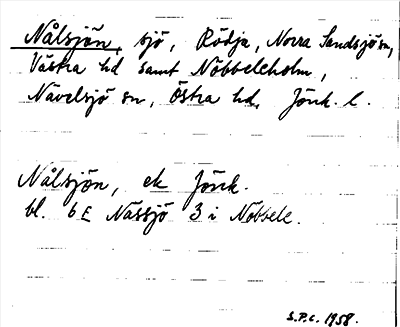 Nålsjön, sjö, Rödja, Norra Sandsjö sn,
Västra hd samt Nöbbeleholm,
Nävelsjö sn, Östra hd, Jönk. l.
Nålsjön, ek Jönk.
bl. 6E Nässjö 3 i Nöbbele.
S.P.C. 1958.